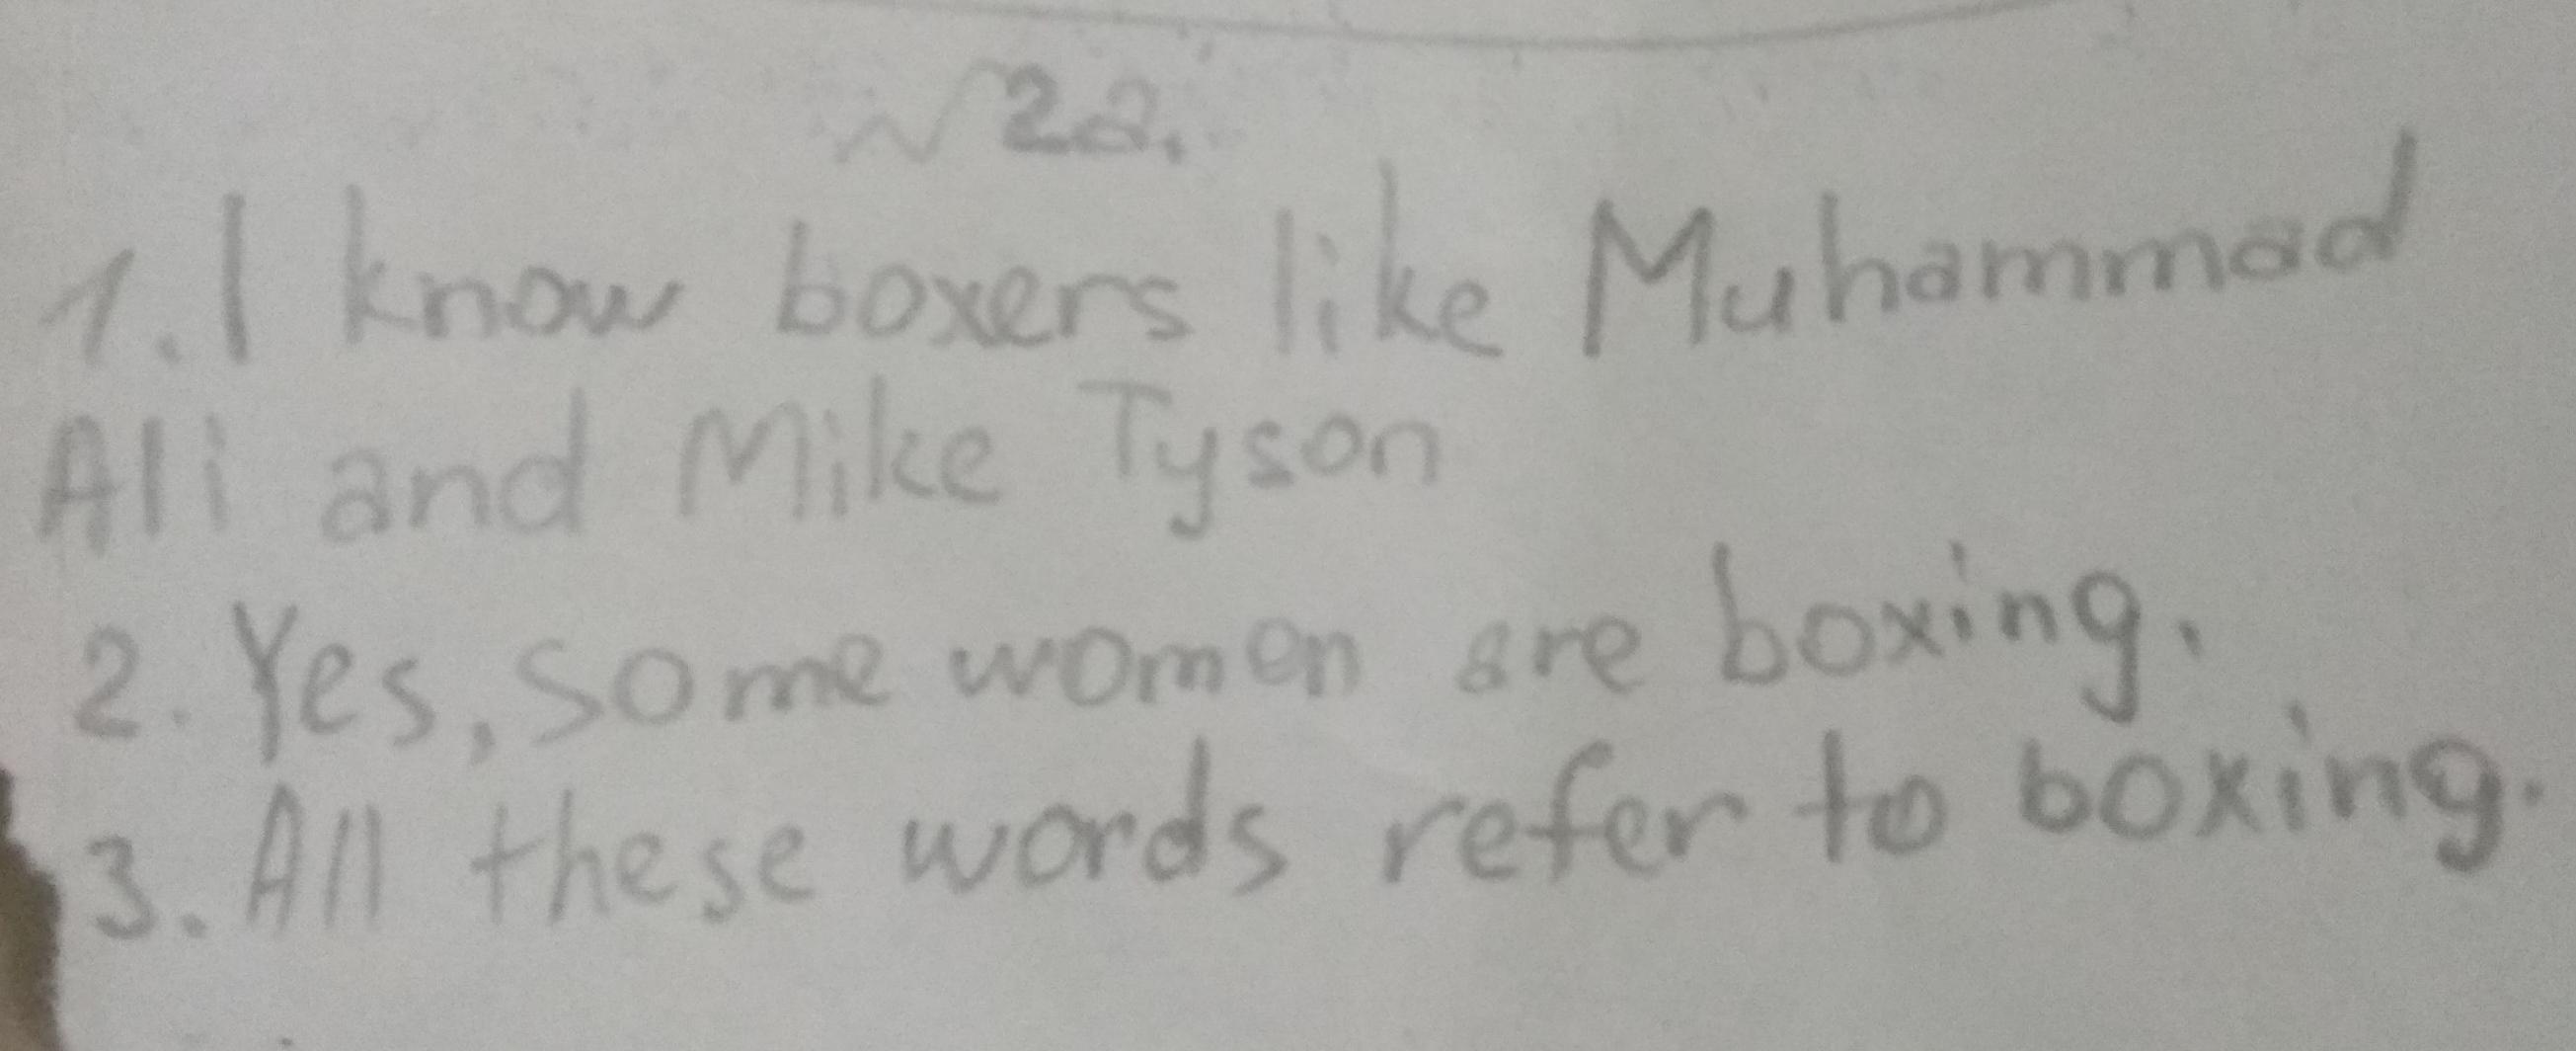 №22.
1. I know boxers like Muhammad
Ali and Mike Tyson
2. Yes, some women are boxing.
3. All these words refer to boxing.